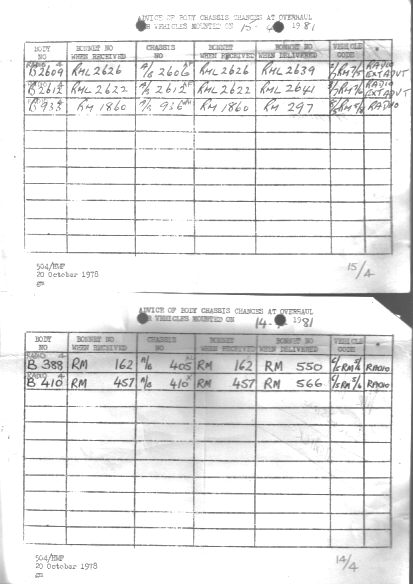 ADVICE OF BODY CHASSIS CHANGES AT OVERHAUL
VEHICLES MOUNTED ON 15-4 1981
BODY NO BONNET NO WHEN RECEIVED CHASSIS NO BONNET WHEN RECEIVED BONNET NO WHEN DELIVERED VEHICLE CODE *
B2609 RML2626 A/B 2606 RML2626 RML2639 RM RADIO EXT ADVT
B2612 RML2622 A/B 2612 RML2622 RML2641 RM RADIO EXT ADVT
B 935 RM 1860 936 RM 1860 RM 297 RM RADIO
504/EMP
20 October 1978
gm
15/4
ADVICE OF BODY CHASSIS CHANGES AT OVERHAUL
VEHICLES MOUNTED ON 14- 1981
BODY NO BONNET NO WHEN RECEIVED CHASSIS NO BONNET WHEN RECEIVED BONNET NO WHEN DELIVERED VEHICLE CODE *
RADIO 4
B 388 RM 162 A/B 405 RM 162 RM 550 RM RADIO
RADIO 4
B 410 RM 457 A/B 410 RM 457 RM 566 RM RADIO
504/EMP
20 October 1978
gm
14/4